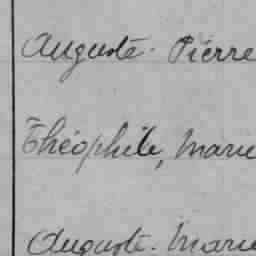 Auguste. Pierre
Théophile, Marie
Auguste. Marie